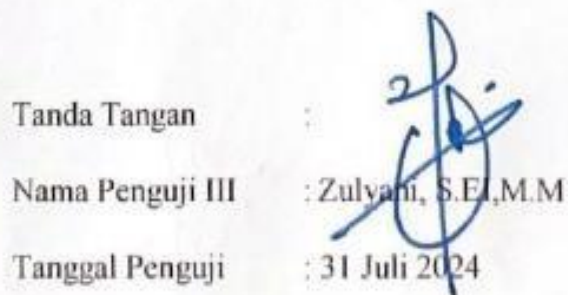 Tanda Tangan :
Nama Penguji III : Zulyani, S.EI,M.M
Tanggal Penguji : 31 Juli 2024